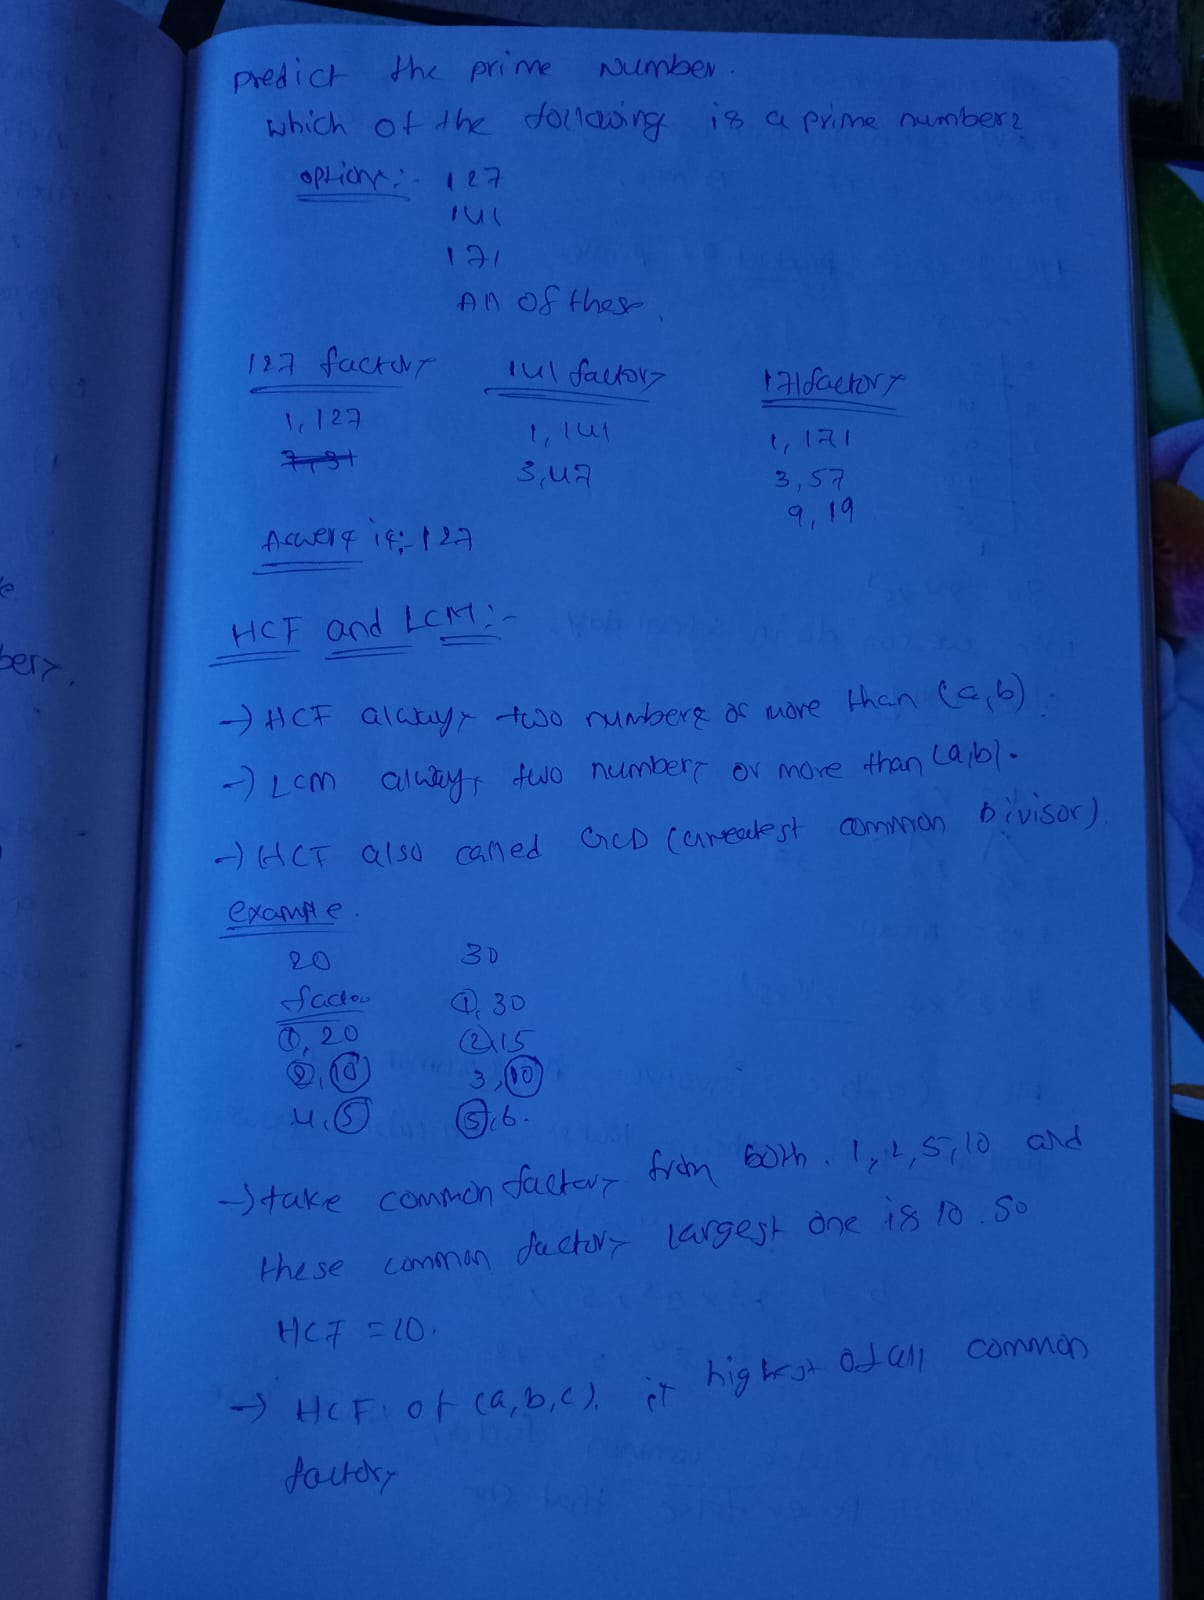 predict the prime number.
which of the following is a prime number?
options:- 127
141
171
All of these.
127 factors 141 factors 171 factors
1, 127 1, 141 1, 171
3, 47 3, 57
9, 19
Aswers is:- 127
HCF and LCM:-
→ HCF always two numbers or more than (a,b).
→ LCM always two numbers or more than (a,b).
→ HCF also called GCD (Greatest common Divisor)
example.
20 30
factors 1, 30
1, 20 2, 15
2, 10 3, 10
4, 5 5, 6.
→ take common factors from both. 1, 2, 5, 10 and
these common factors largest one is 10. So
HCF = 10.
→ HCF of (a, b, c). is highest of all common
factors
ber's.